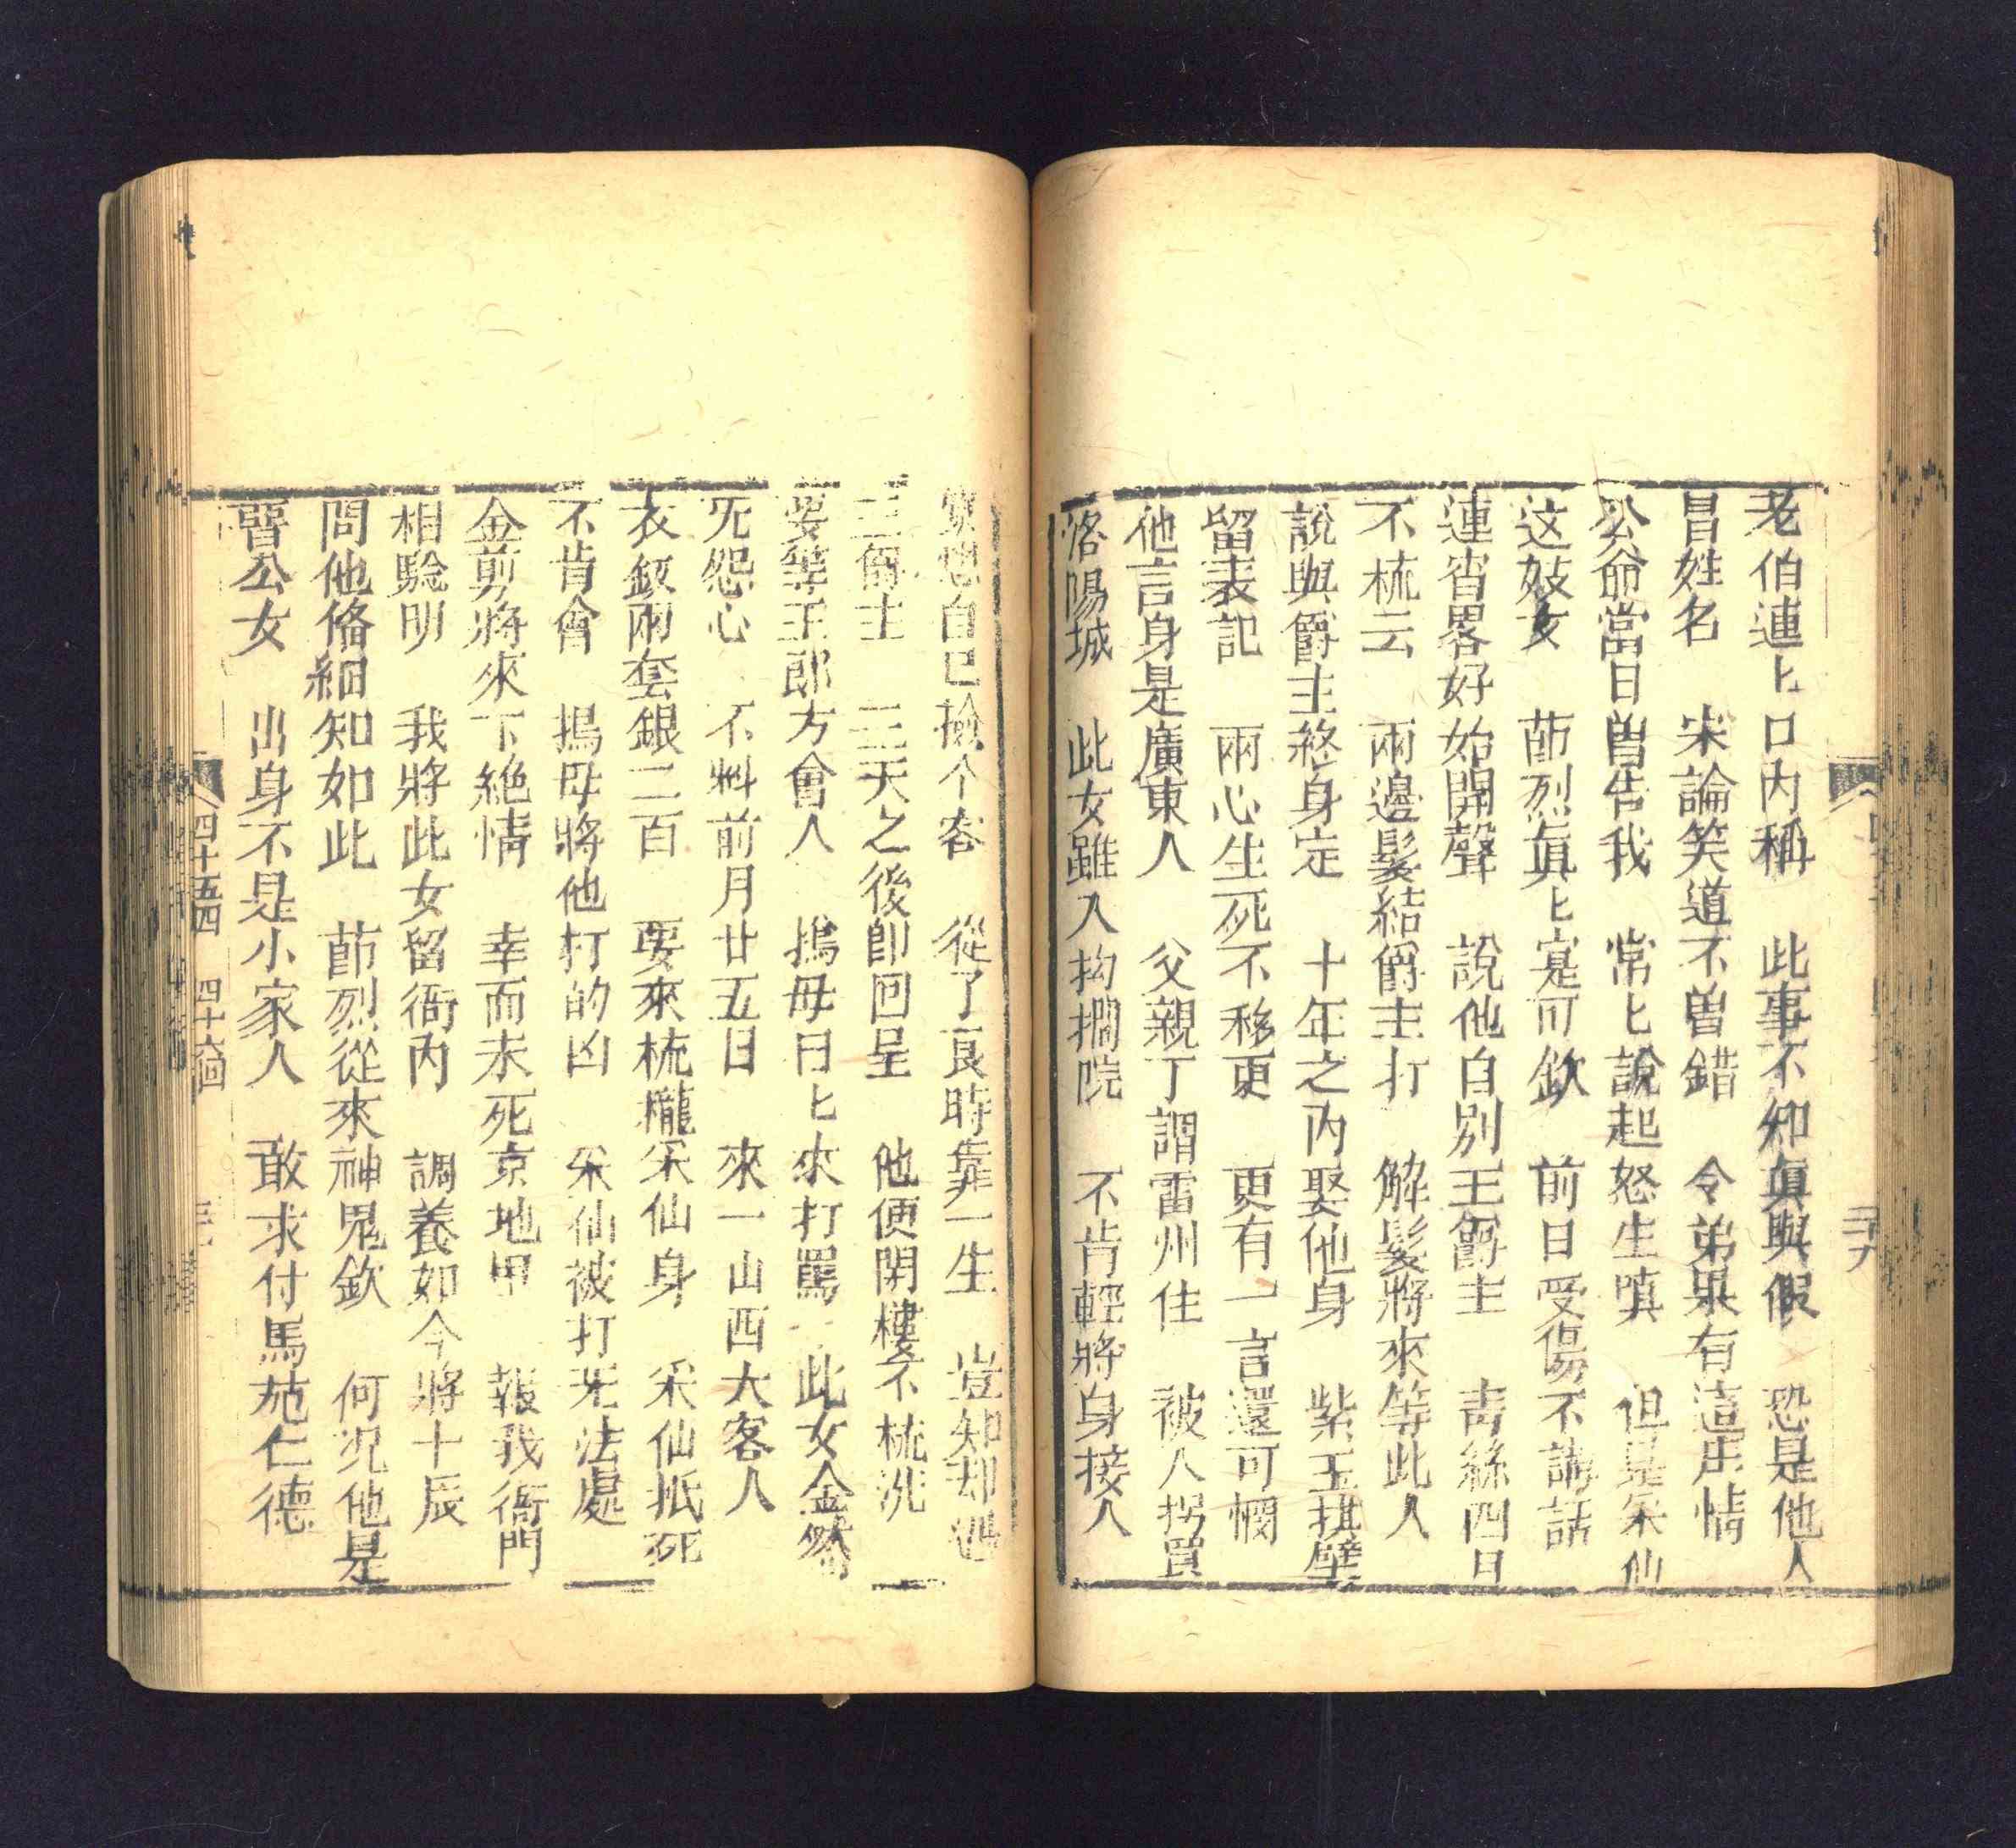 老伯連〻口內稱　此事不知真與假　恐是他人
冒姓名　宋論笑道不曾錯　令弟果有這庄情
公命當日曽告我　常〻說起怒生嗔　但是采仙
这妓女　莭烈眞〻寔可欽　前日受傷不講話
連宵畧好始開聲　說他自別王爵主　青絲四日
不梳云　兩邊髮結爵主打　解髮將來等此人
說與爵主終身定　十年之內娶他身　紫玉棋壁
留表記　兩心生死不移更　更有一言還可憫
他言身是廣東人　父親丁謂雷州住　被人拐買
洛陽城　此女雖入抅攔院　不肯輕將身接人
自己揀个客　從了良時靠一生　豈知却遇
三爵主　三天之後卽回呈　他便閉樓不梳洗
要等王郎方會人　搗毋日〻來打罵　此女金然
旡怨心　不料前月廿五日　來一山西大客人
衣釵兩套銀二百　要來梳櫳采仙身　采仙抵死
不肯會　搗毋將他打的凶　采仙被打旡法處
金剪將來下絶情　幸而未死京地甲　報我衙門
相驗明　我將此女留衙內　調養如今將十辰
問他俻細知如此　莭烈從來神鬼欽　何况他是
晋公女　出身不是小家人　敢求付馬施仁德
四十五四　四十六囬